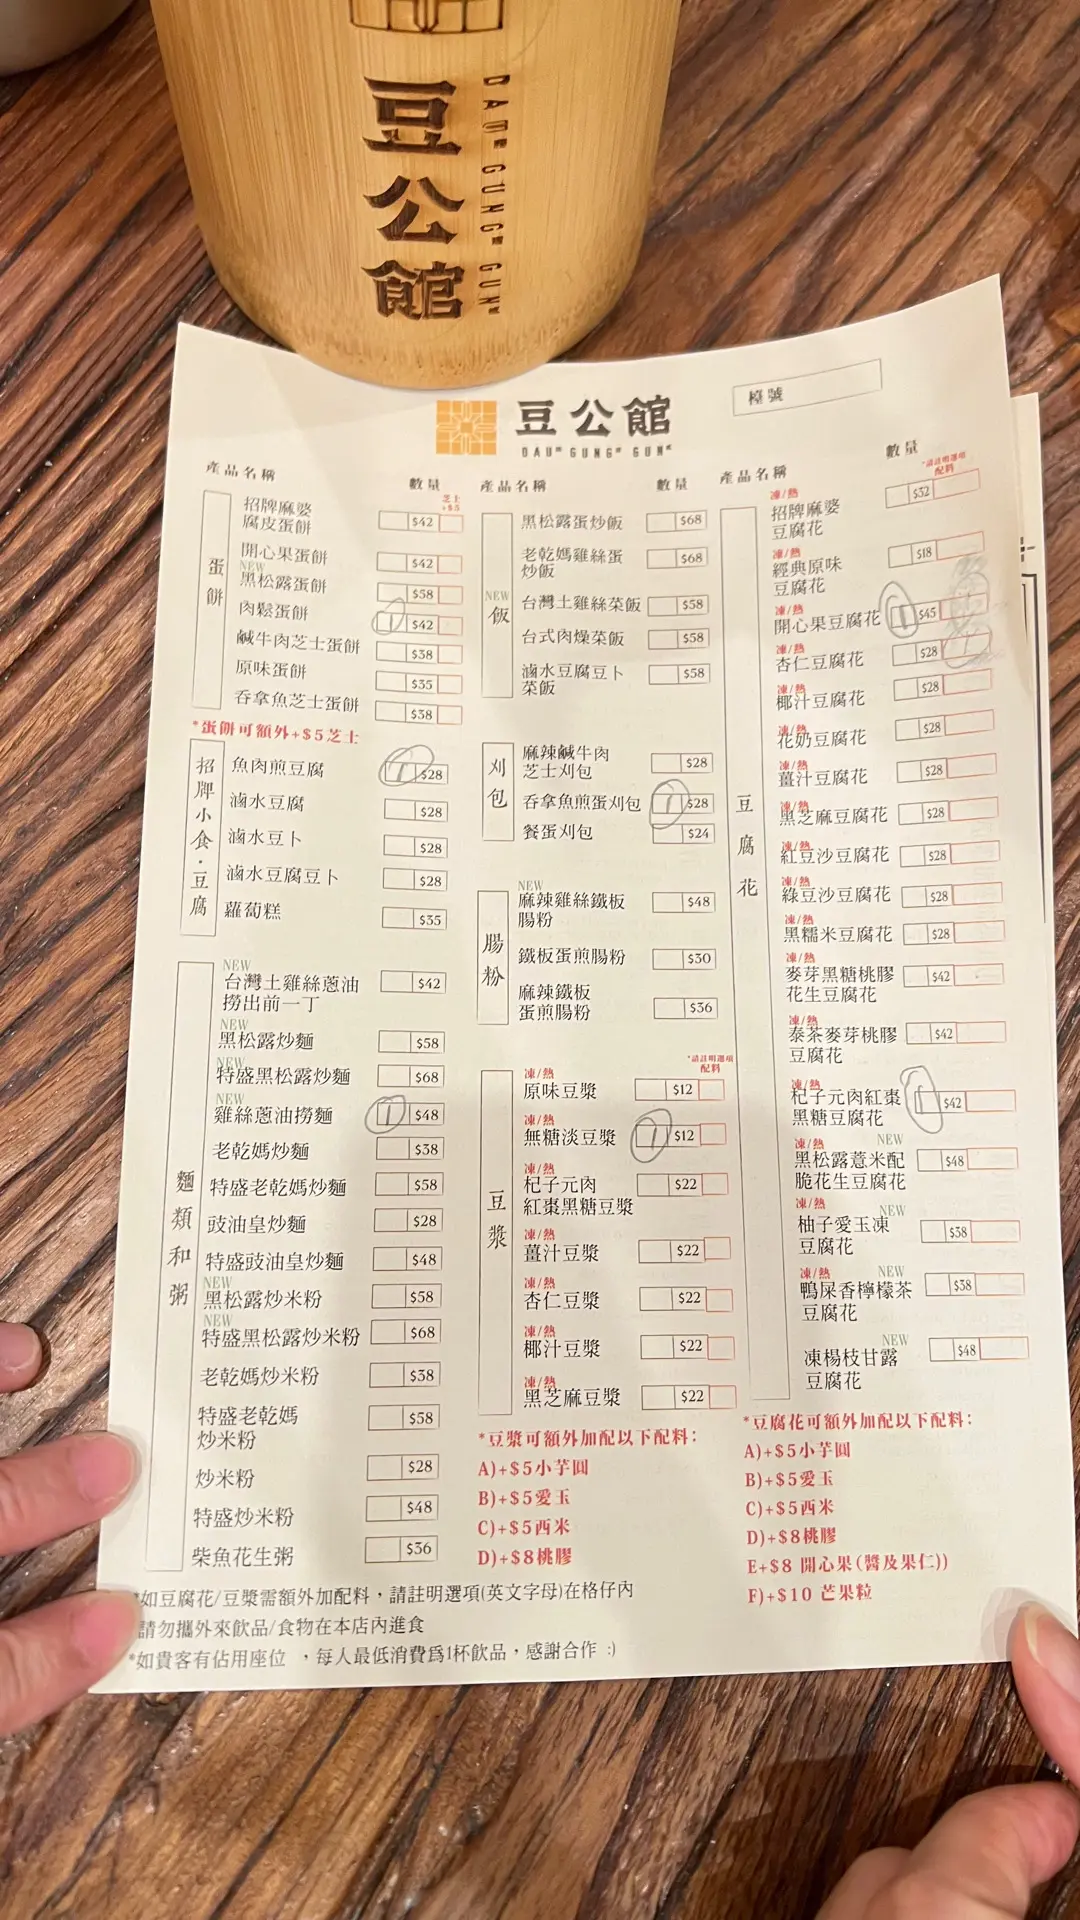 豆公館
DAUᴴ GUNGᴴ GUNᴷ
豆公館
DAUᴴ GUNGᴴ GUNᴷ
檯號
產品名稱 數量
芝士
+$5
蛋餅
招牌麻婆
腐皮蛋餅 $42
開心果蛋餅 $42
NEW
黑松露蛋餅 $58
肉鬆蛋餅 1 $42
鹹牛肉芝士蛋餅 $38
原味蛋餅 $35
吞拿魚芝士蛋餅 $38
*蛋餅可額外+$5芝士
招牌小食·豆腐
魚肉煎豆腐 1 $28
滷水豆腐 $28
滷水豆卜 $28
滷水豆腐豆卜 $28
蘿蔔糕 $35
麵類和粥
NEW
台灣土雞絲蔥油
撈出前一丁 $42
NEW
黑松露炒麵 $58
NEW
特盛黑松露炒麵 $68
NEW
雞絲蔥油撈麵 1 $48
老乾媽炒麵 $38
特盛老乾媽炒麵 $58
豉油皇炒麵 $28
特盛豉油皇炒麵 $48
NEW
黑松露炒米粉 $58
NEW
特盛黑松露炒米粉 $68
老乾媽炒米粉 $38
特盛老乾媽
炒米粉 $58
炒米粉 $28
特盛炒米粉 $48
柴魚花生粥 $36
產品名稱 數量
NEW
飯
黑松露蛋炒飯 $68
老乾媽雞絲蛋
炒飯 $68
台灣土雞絲菜飯 $58
台式肉燥菜飯 $58
滷水豆腐豆卜
菜飯 $58
刈包
麻辣鹹牛肉
芝士刈包 $28
吞拿魚煎蛋刈包 1 $28
餐蛋刈包 $24
腸粉
NEW
麻辣雞絲鐵板
腸粉 $48
鐵板蛋煎腸粉 $30
麻辣鐵板
蛋煎腸粉 $36
*請註明選項
配料
豆漿
凍/熱
原味豆漿 $12
凍/熱
無糖淡豆漿 1 $12
凍/熱
杞子元肉
紅棗黑糖豆漿 $22
凍/熱
薑汁豆漿 $22
凍/熱
杏仁豆漿 $22
凍/熱
椰汁豆漿 $22
凍/熱
黑芝麻豆漿 $22
*豆漿可額外加配以下配料：
A)+$5小芋圓
B)+$5愛玉
C)+$5西米
D)+$8桃膠
產品名稱 數量
*請註明選項
配料
豆腐花
凍/熱
招牌麻婆
豆腐花 $32
凍/熱
經典原味
豆腐花 $18
凍/熱
開心果豆腐花 1 $45
凍/熱
杏仁豆腐花 $28
凍/熱
椰汁豆腐花 $28
凍/熱
花奶豆腐花 $28
凍/熱
薑汁豆腐花 $28
凍/熱
黑芝麻豆腐花 $28
凍/熱
紅豆沙豆腐花 $28
凍/熱
綠豆沙豆腐花 $28
凍/熱
黑糯米豆腐花 $28
凍/熱
麥芽黑糖桃膠
花生豆腐花 $42
凍/熱
泰茶麥芽桃膠
豆腐花 $42
凍/熱
杞子元肉紅棗
黑糖豆腐花 1 $42
凍/熱 NEW
黑松露薏米配
脆花生豆腐花 $48
凍/熱 NEW
柚子愛玉凍
豆腐花 $38
凍/熱 NEW
鴨屎香檸檬茶
豆腐花 $38
NEW
凍楊枝甘露
豆腐花 $48
*豆腐花可額外加配以下配料：
A)+$5小芋圓
B)+$5愛玉
C)+$5西米
D)+$8桃膠
E+$8 開心果(醬及果仁))
F)+$10 芒果粒
*如豆腐花/豆漿需額外加配料，請註明選項(英文字母)在格仔內
請勿攜外來飲品/食物在本店內進食
*如貴客有佔用座位 ，每人最低消費為1杯飲品，感謝合作 :)